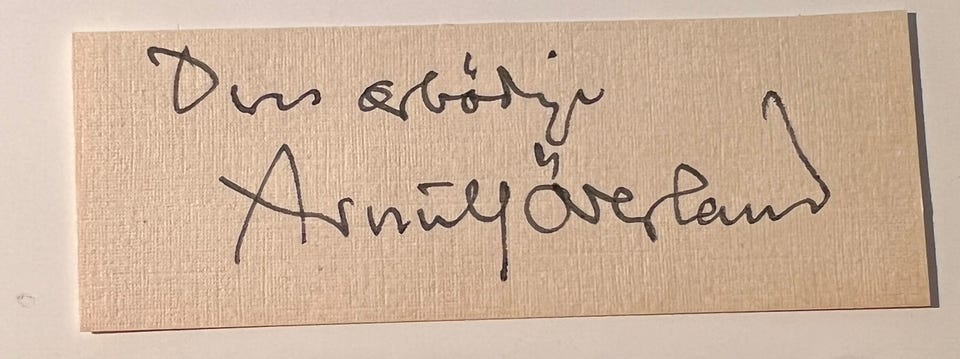 Deres ærbödige
Arnulf Överland